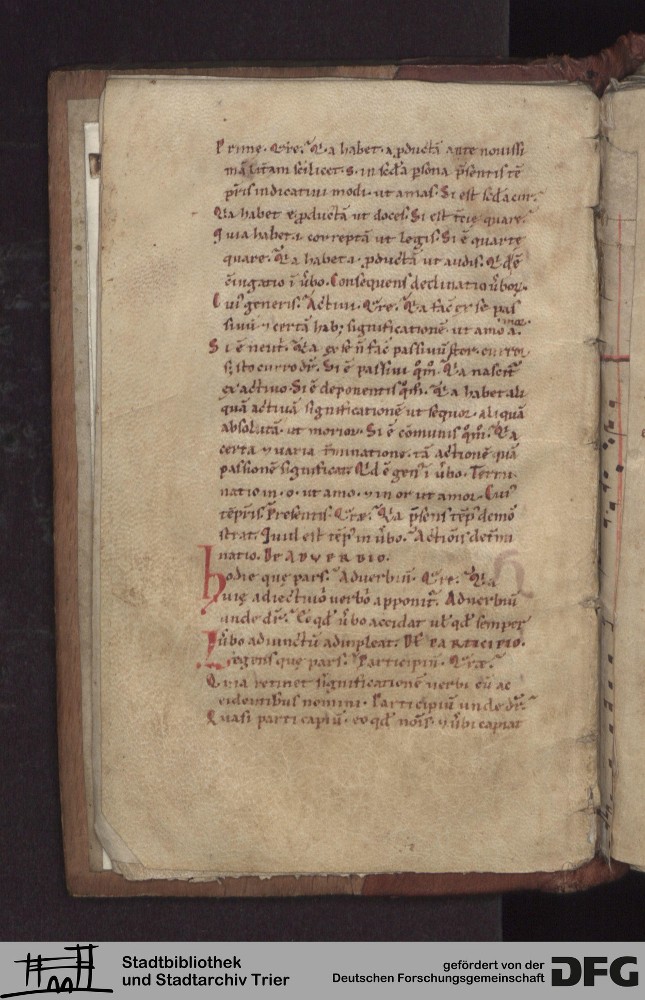 Prime. Qre. Qa habet. a. pductā ante novissi
mā litam scilicet. s. in scda psona psentis tē
pris indicativi modi. ut amas. Si est scda cur.
Qia habet e. pductā ut doces. Si est tcie quare.
Quia habet. i. correptā ut legis. Si ē quarte
quare. Qa habet. i. pductā ut audis. Qd ē
ciugatio ī ubo. Consequens declinatio ubor.
Cui generis. Activi. Qre. Qa fac ex se pas
sivū 7 certā hab; significationē ut amo amor.
Si ē neut. Qa ex se n fac passivū
Si ē passivi qm. Qa nascit
ex activo. Si ē deponentis qm. Qa habet ali
quā activā significationē ut sequor. aliquā
absolutā. ut morior. Si ē cōmunis qm. Qa
certa 7 varia tminatione. tā actionē quā
passionē significat. Qd ē gen ī ubo. Termi
natio in. o. ut amo. 7 in or ut amor. Cui
tēpris. Presentis. Qre. Qa psens tēp demō
strat. Quid est tēp in ubo. Actiōis detmi
natio. DE ADVERBIO.
hodie que pars. Adverbiū. Qre. Qa
vie adiectivū verbo apponit. Adverbiū
unde dr. Eo qd ubo accidat ul qd semper
ubo adiunctū adimpleat. DE PARTICIPIO.
Legens que pars. Participiū. Qre.
Quia retinet significationē verbi cū ac
cidentibus nomini. Participiū unde dr.
Quasi particapiū. eo qd nois 7 ubi capiat
Stadtbibliothek
und Stadtarchiv Trier
gefördert von der
Deutschen Forschungsgemeinschaft
DFG